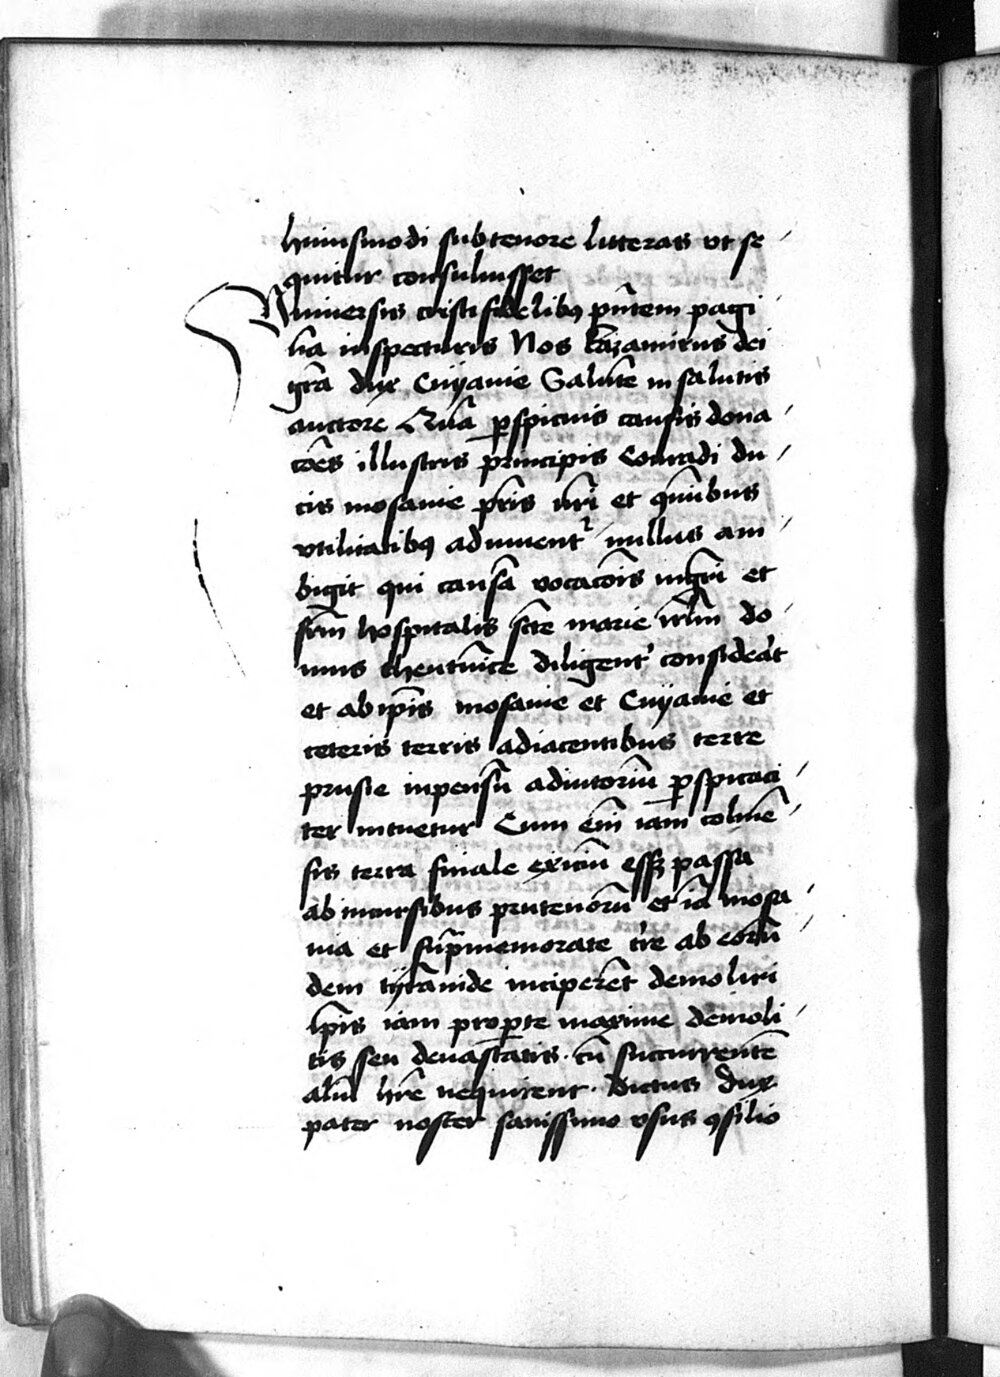 huiusmodi sub tenore litteras vt se
quitur consuluisset
Vniuersis cristi fidelibꝫ pn̄tem pagi
na inspecturis Nos kazamirus dei
gr̄a dux Cuyauie Salutē in salutis
auctore Quā ꝑspicuis causis dona
cōes illustris principis Conradi du
cis mosauie pr̄is nr̄i et quibus
vtilitatibꝫ adiuuent᷑ nullus am
bigit qui causā vocacōis mgr̄i et
frm̄ hospitalis sctē marie irl̄m do
mus theutuīce diligent᷑ consideat᷑
et ab ip̄is mosauie et Cuyauie et
ceteris terris adiacentibus terre
prusie inpensū adiutoriū ꝑspicaci
ter intuetur Cum em̄ iam colmē
sis terra finale exiciū essꝫ passa
ab incursibus prutenorū et iā mosa
uia et sup̄memorate tr̄e ab eorū
dem tyrānide inciperēt demoliri
Ip̄is iam proptē maxime demoli
tis seu deuastatis. cū succurrentē
aliū hr̄e nequirent. Dictus dux
pater noster sanissimo vsus ꝯsilio